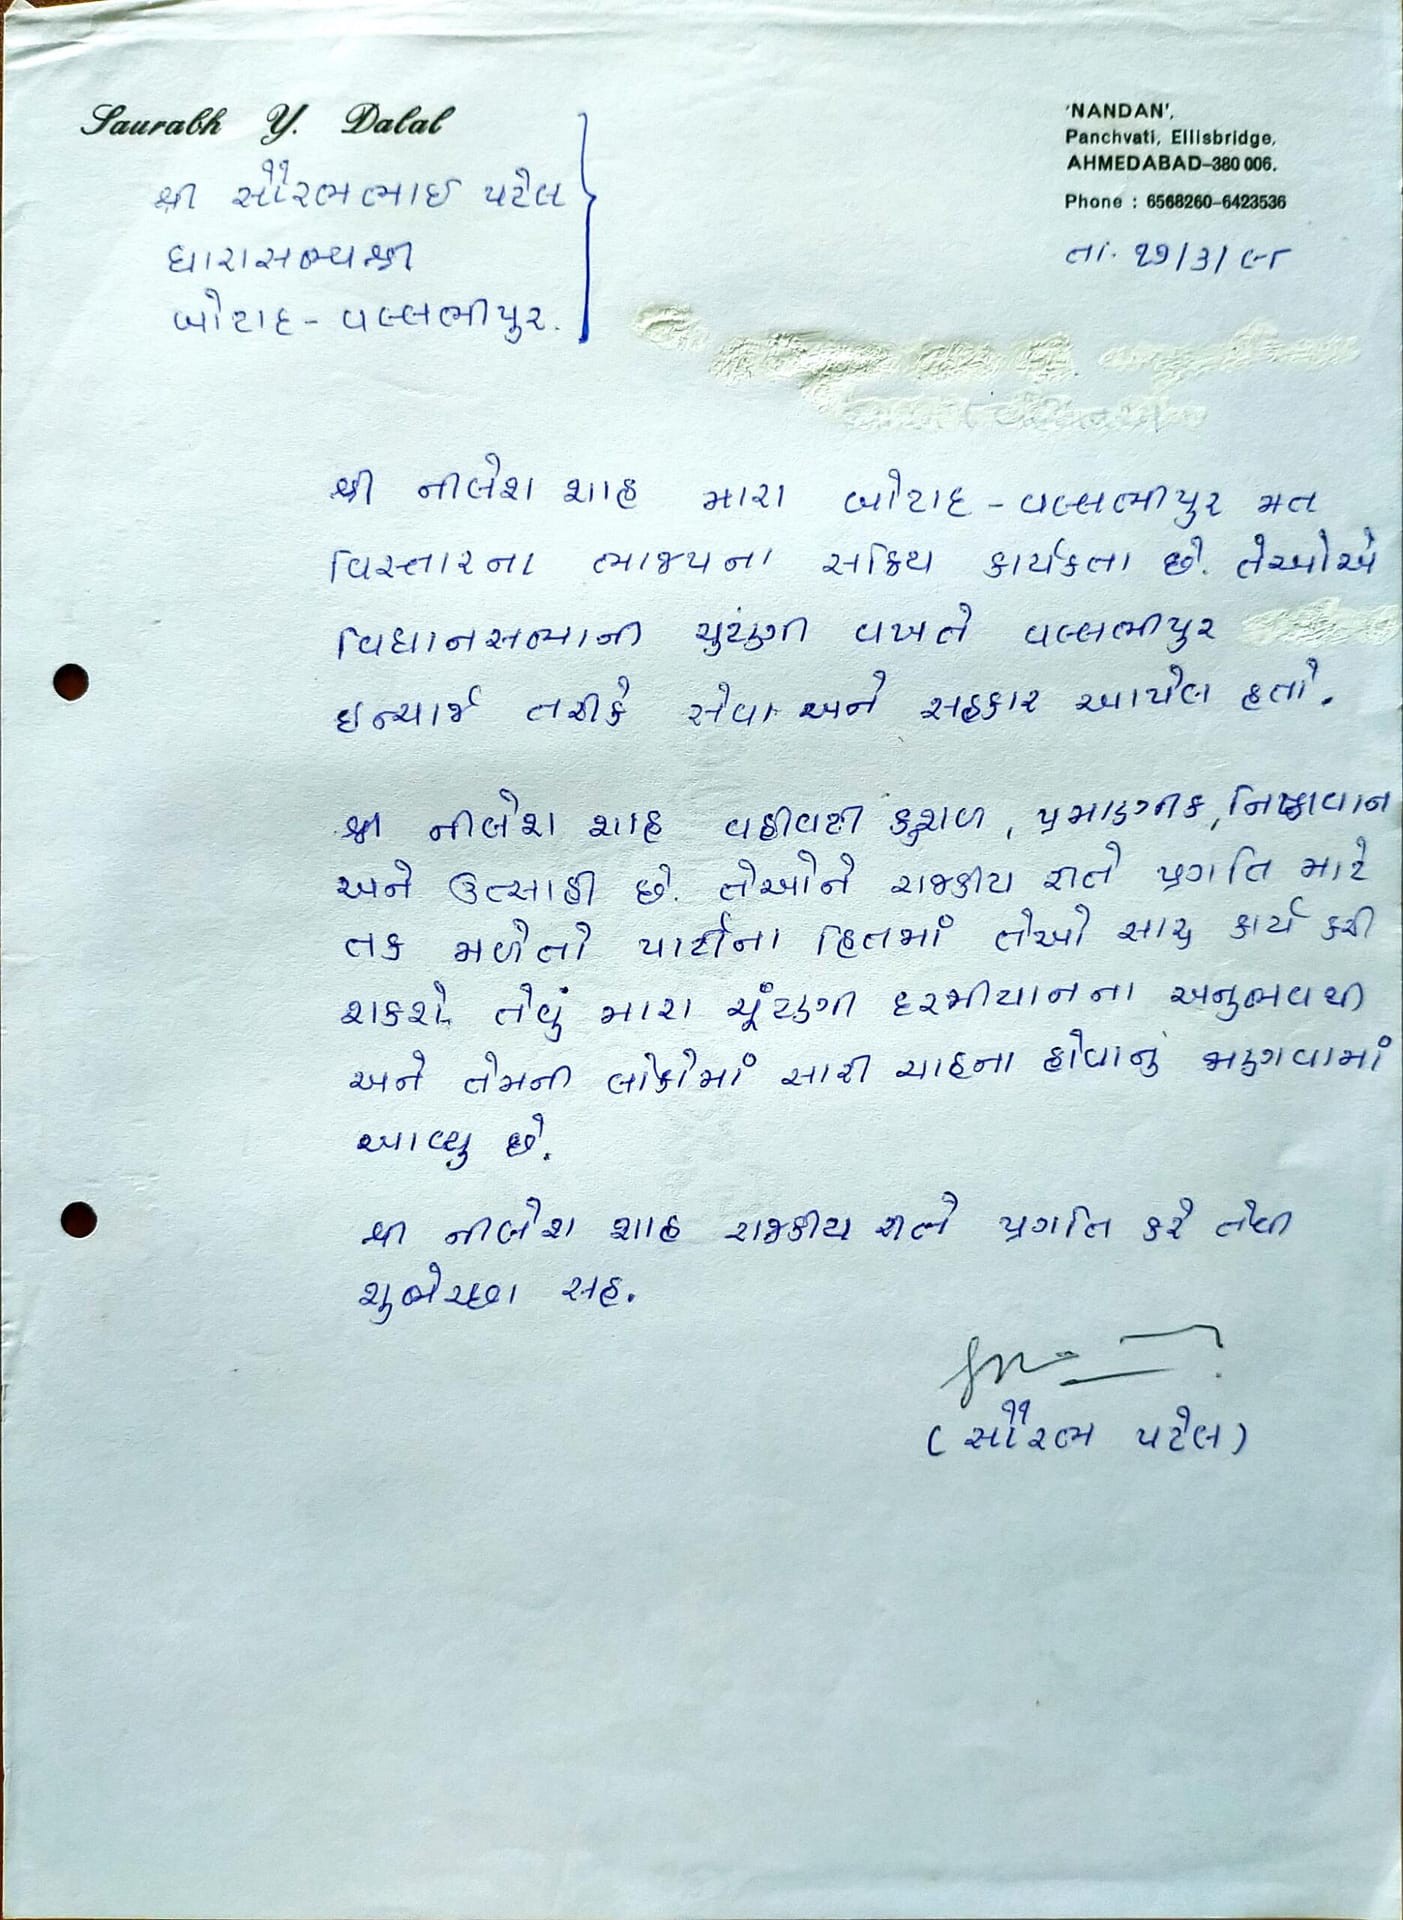 Saurabh Y. Dalal
'NANDAN',
Panchvati, Ellisbridge,
AHMEDABAD-380 006.
Phone : 6568260-6423536
શ્રી સૌરભભાઈ પટેલ
ધારાસભ્યશ્રી
બોટાદ - વલ્લભીપુર.
તા. ૨૭/૩/૯૮
શ્રી નીલેશ શાહ મારા બોટાદ - વલ્લભીપુર મત
વિસ્તારના ભાજપના સક્રિય કાર્યકતા છે. તેઓએ
વિધાનસભાની ચુટણી વખતે વલ્લભીપુર
ઇન્ચાર્જ તરીકે સેવા અને સહકાર આપેલ હતો.
શ્રી નીલેશ શાહ વહીવટી કુશળ, પ્રમાણીક, નિષ્ઠાવાન
અને ઉત્સાહી છે. તેઓને રાજકીય રીતે પ્રગતિ માટે
તક મળેતો પાર્ટીના હિતમાં તેઓ સારુ કાર્ય કરી
શકશે. તેવું મારા ચૂંટણી દરમીયાનના અનુભવથી
અને તેમની લોકોમાં સારી ચાહના હોવાનું જાણવામાં
આવ્યુ છે.
શ્રી નીલેશ શાહ રાજકીય રીતે પ્રગતિ કરે તેવી
શુભેચ્છા સહ.
( સૌરભ પટેલ )